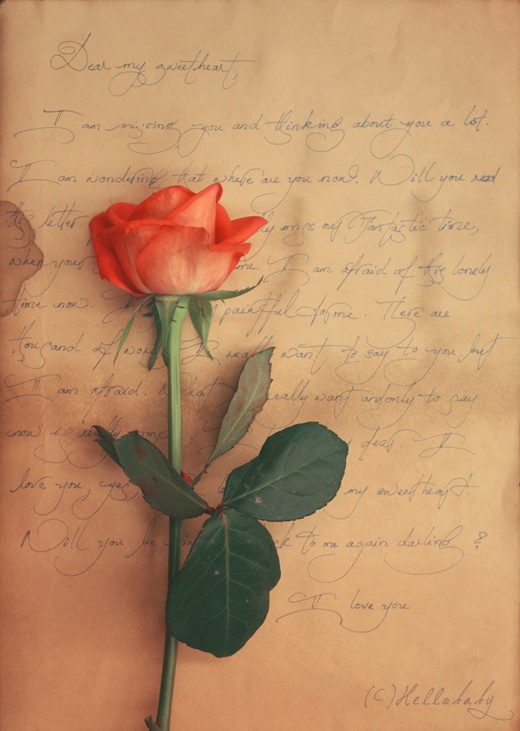 Dear my sweetheart,
I am missing you and thinking about you a lot.
I am wondering that where are you now?. Will you read
this letter my fantastic time,
when your me. I am afraid of the lonely
time now. painful for me. There are
thousand of wor I really want to say to you but
I am afraid. What really want and only to say
now is really simp dear. I
love you, yes my sweetheart.
Will you be to me again darling ?
I love you
(c) Hellobaby